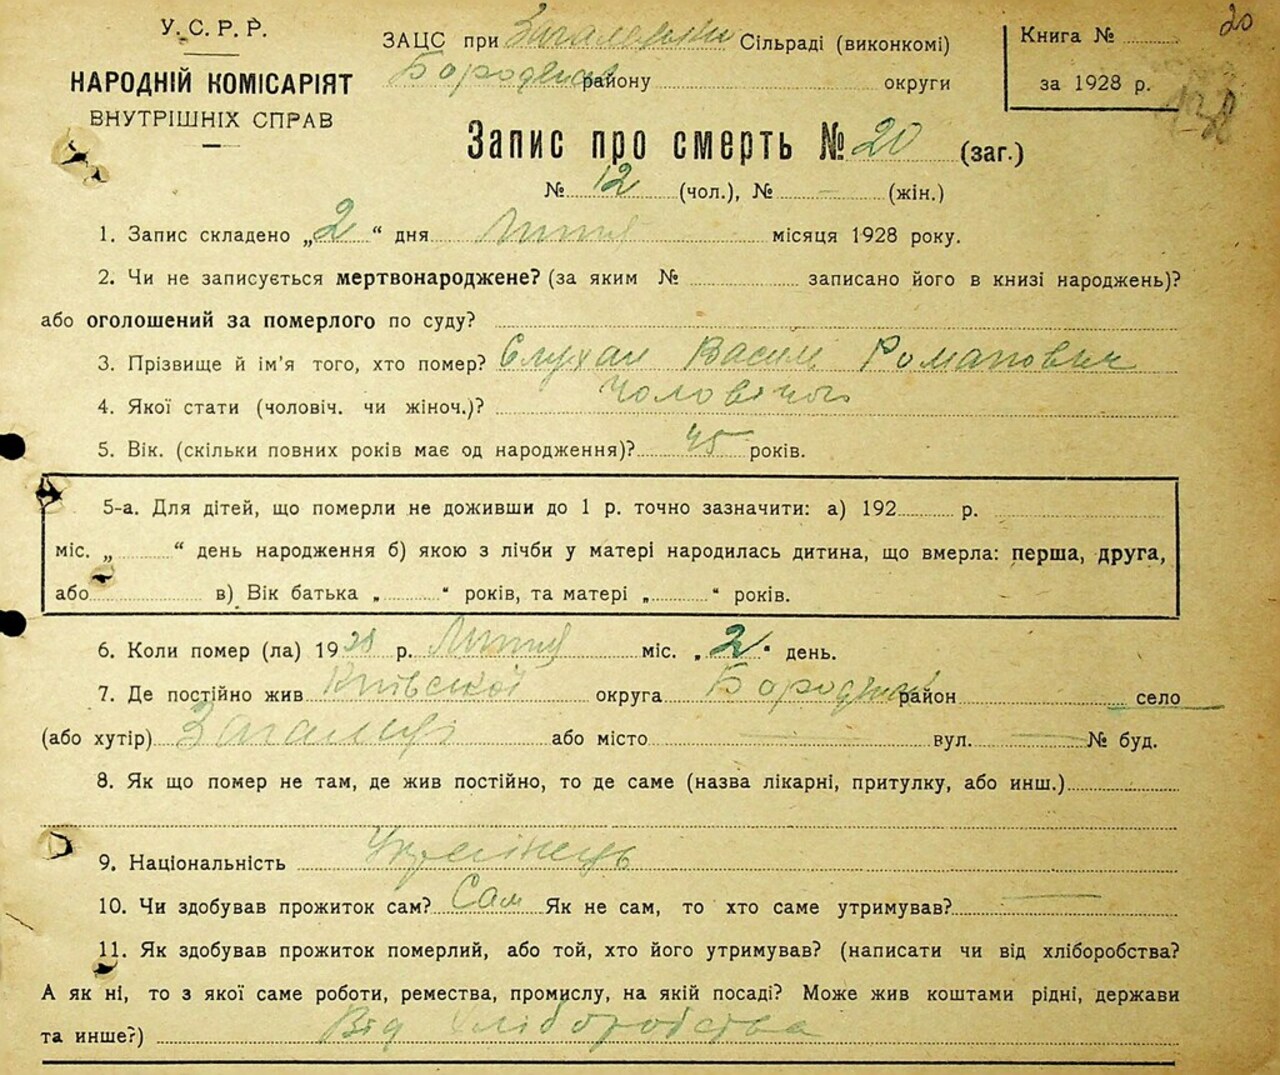 У.С.Р.Р.
НАРОДНІЙ КОМІСАРІЯТ
ВНУТРІШНІХ СПРАВ
ЗАЦС при Сільраді (виконкомі)
району округи
Книга №
за 1928 р.
20
Запис про смерть № 20 (заг.)
№ 12 (чол.), № — (жін.)
1. Запис складено „2“ дня Липня місяця 1928 року.
2. Чи не записується мертвонароджене? (за яким № записано його в книзі народжень)?
або оголошений за померлого по суду?
3. Прізвище й ім'я того, хто помер? Слухай Васил Романович
4. Якої стати (чоловіч. чи жіноч.)? Чоловічого
5. Вік. (скільки повних років має од народження)? 45 років.
5-а. Для дітей, що померли не доживши до 1 р. точно зазначити: а) 192 р.
міс. „ “ день народження б) якою з лічби у матері народилась дитина, що вмерла: перша, друга,
або в) Вік батька „ “ років, та матері „ “ років.
6. Коли помер (ла) 1928 р. Липня міс. „2“ день.
7. Де постійно жив Київської округа район село
(або хутір) Загальці або місто — вул. — № буд.
8. Як що помер не там, де жив постійно, то де саме (назва лікарні, притулку, або инш.)
9. Національність Українець
10. Чи здобував прожиток сам? Сам Як не сам, то хто саме утримував? —
11. Як здобував прожиток померлий, або той, хто його утримував? (написати чи від хліборобства?
А як ні, то з якої саме роботи, ремества, промислу, на якій посаді? Може жив коштами рідні, держави
та инше?) Від хліборобства